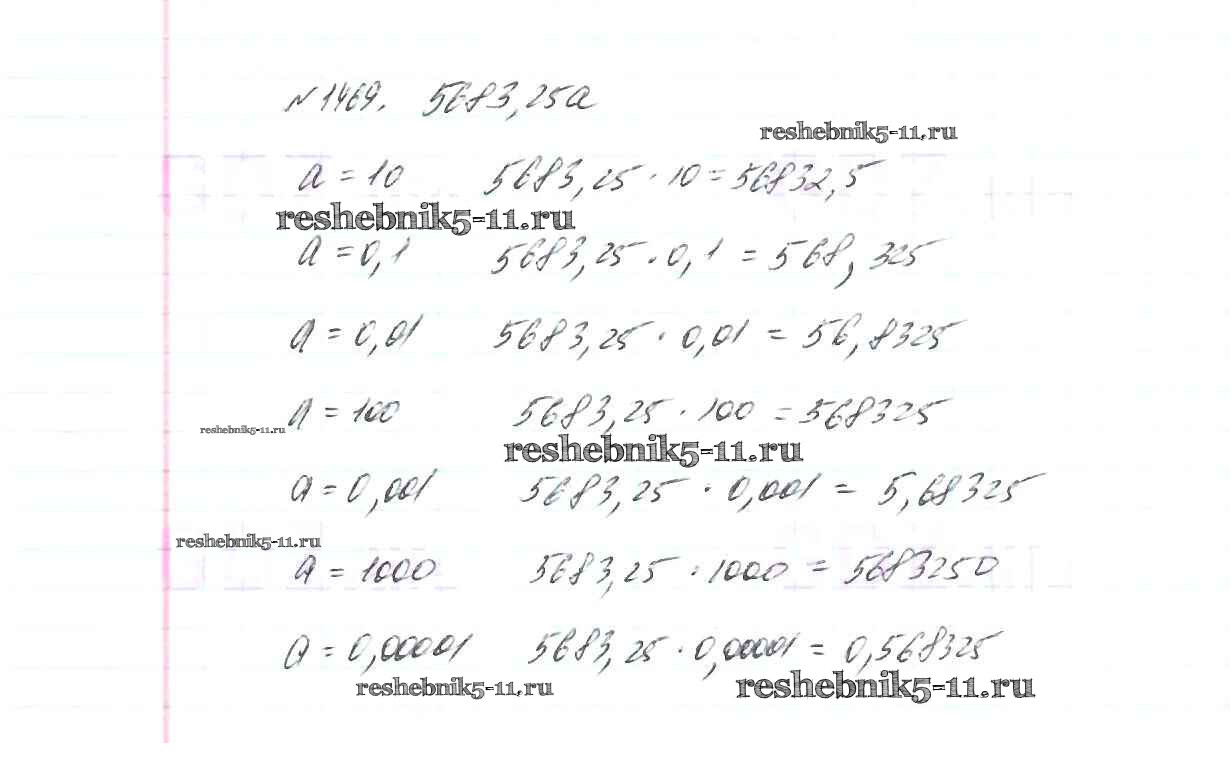 №1469. 5683,25a
reshebnik5-11.ru
a = 10 5683,25 · 10 = 56832,5
reshebnik5-11.ru
a = 0,1 5683,25 · 0,1 = 568,325
a = 0,01 5683,25 · 0,01 = 56,8325
a = 100 5683,25 · 100 = 568325
reshebnik5-11.ru
reshebnik5-11.ru
a = 0,001 5683,25 · 0,001 = 5,68325
reshebnik5-11.ru
a = 1000 5683,25 · 1000 = 5683250
a = 0,00001 5683,25 · 0,00001 = 0,568325
reshebnik5-11.ru
reshebnik5-11.ru